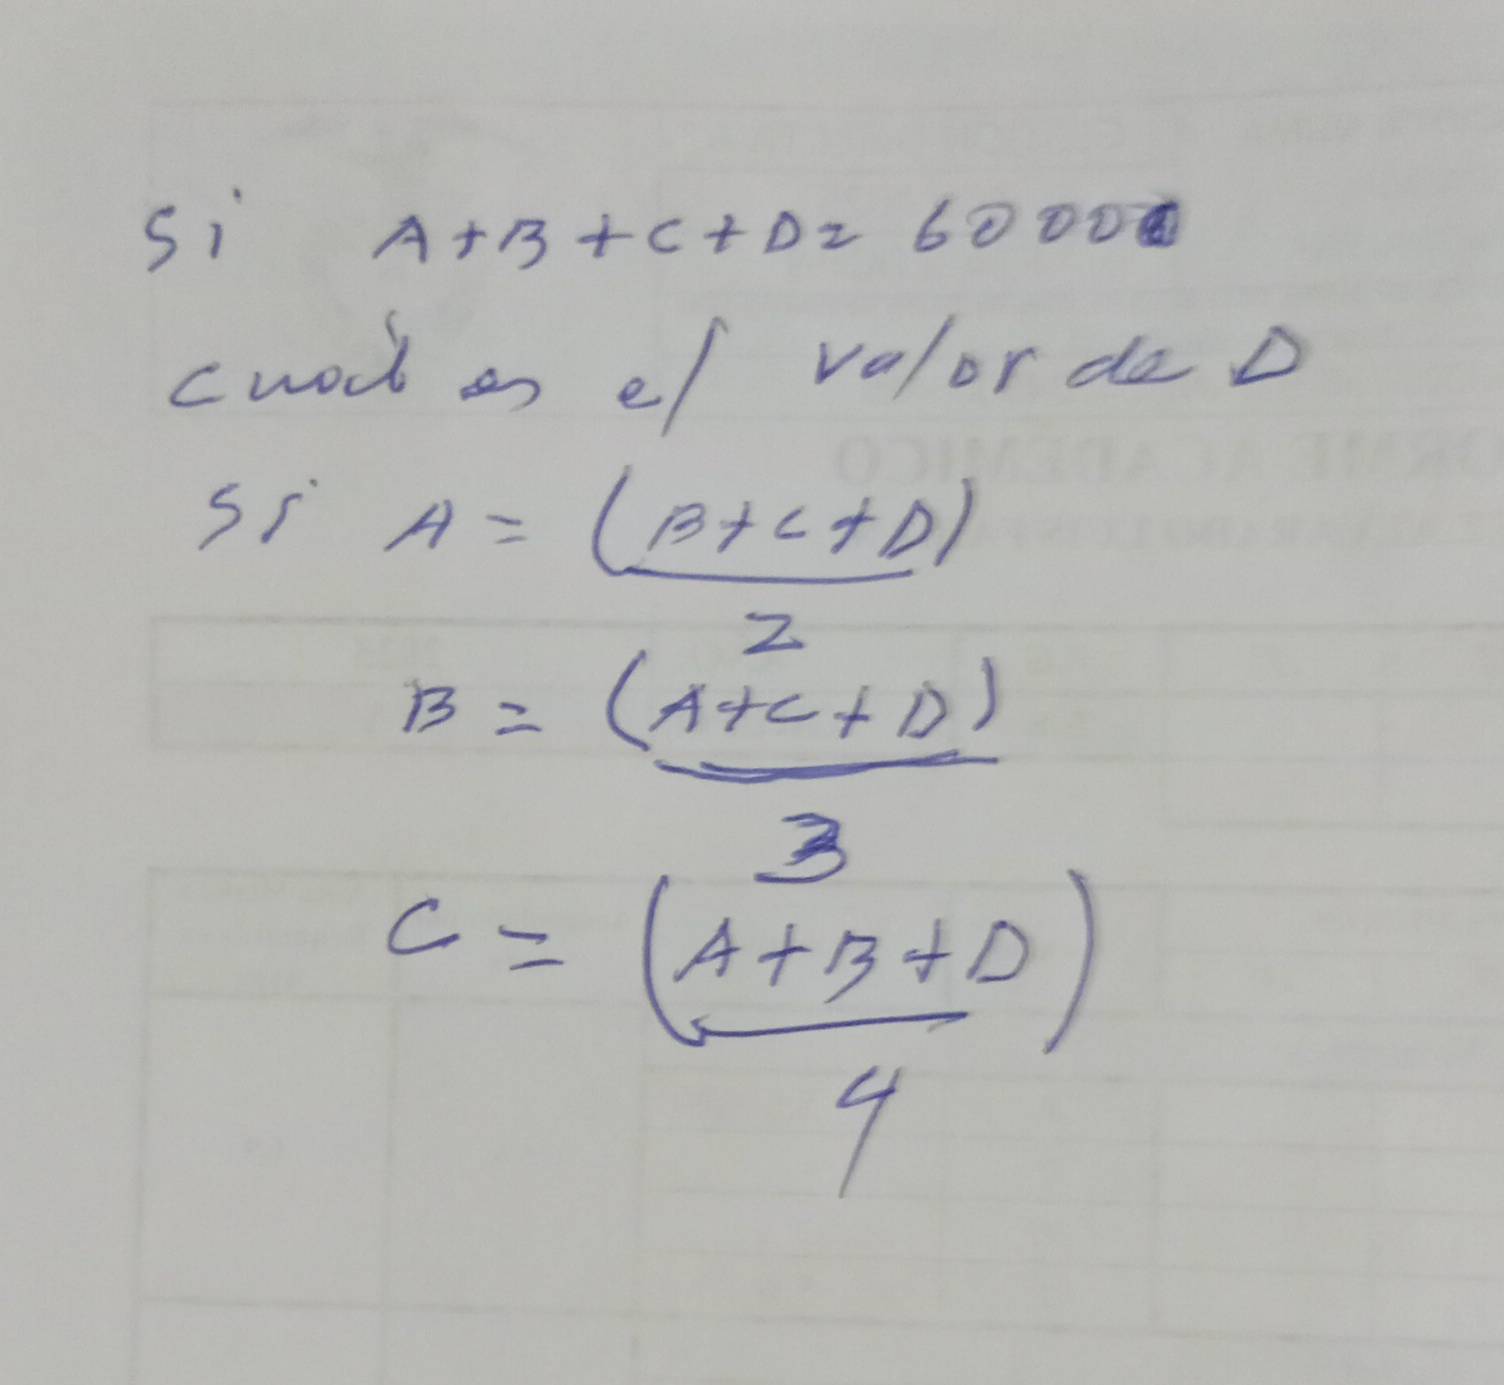 Si A+B+C+D= 60000
cual es el valor de D
Si A = (B+C+D)
2
B = (A+C+D)
3
C = (A+B+D)
4
ACADEMICO